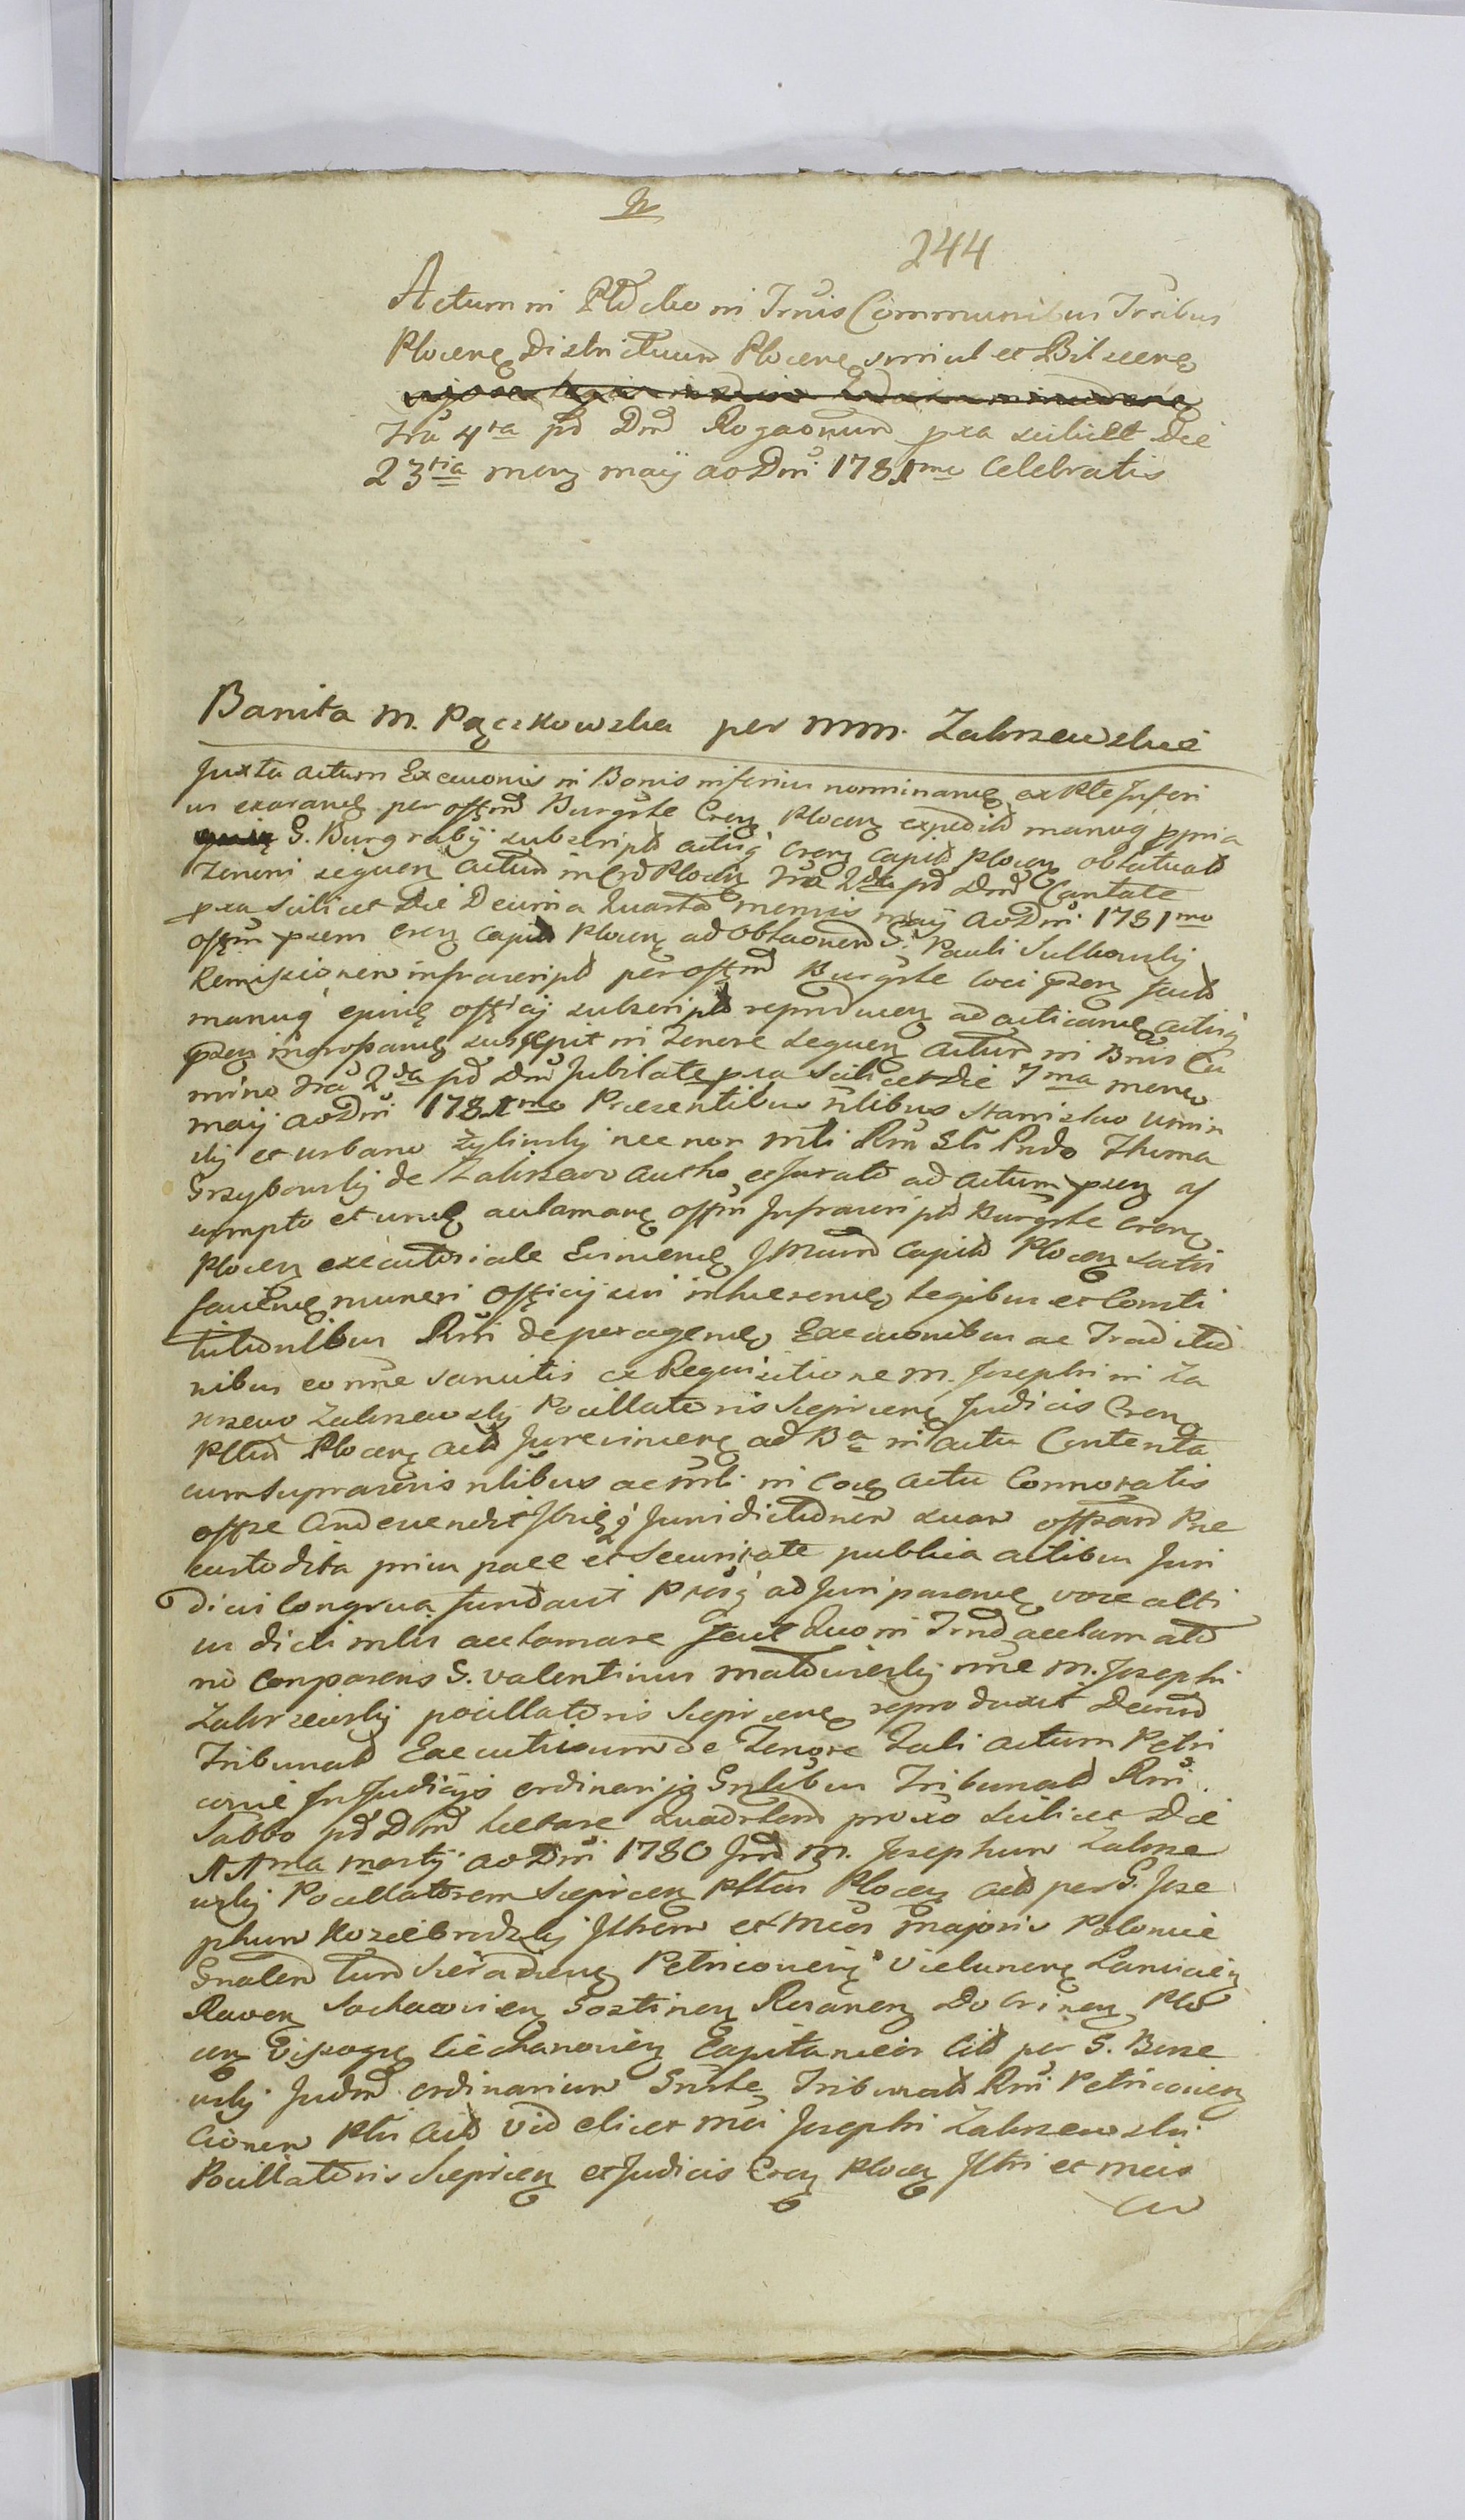 244
Actum in Ploceo in Trnis Communibus Trribus
Plocen Districtuum Plocen simul et Bilscen
Fria 4ta pd Dnd Rogaonum pxa scilicet Die
23tia mens maij ao Dni 1781mo Celebratis
Banita M. Pączkowska per MM. Zakrzewskie
Juxta actum Execuonis in Bonis inferius nominan ex Pte Inferi
us exaran per offm Burgrle Cren Plocen expedit manuq ppria
G. Burgrabij subscript actisq cren capit Plocen oblatuat
Tenoris sequen Actum in Cro Plocen Fria 2da pd Dnd Cantate
pxa scilicet Die Decima Quarta mensis maij ao Dni 1781mo
offm psens cren capit Plocen ad oblaonem G. Pauli Sulkowskij
Remissionem infrascript per offm Burgrle loci psen fact
manuq ejus officij subscript reproducen ad acticand actisq
psen ingrossand suscepit in Tenore sequen Actum in Bnis Ca
mino Fria 2da pd Dni Jubilate pxa scilicet Die 7ma mens
maij ao Dni 1781mo Praesentibus nlibus Stanislao Umin
skij et Urbano Żylinskij nec non Mli Rni Gli Prdo Thoma
Grzybowskij de Zakrzewo autho et Jurato ad actum psen as
sumpto et und aclamare offm Infrascript Burgrle cren
Plocen executoriale Eviniend Jpsum capit Plocen satis
faciend muneri officij sui inhaerend legibus et Consti
tutionibus Rni de peragend Execuonibus ac Traditio
nibus eo nne sancitis ex Requisitione M. Josephi in Za
krzewo Zakrzewskij Pocillatoris Sieprcen Judicis Cren
Pltin Plocen act Jurevincen ad Ba in actu Contenta
cum suprascris nlibus ac mli in eod actu Connotatis
offse condescendit Jbiq Jurisdictionem suam offosam Prae
custodita prius pace et securitate publica actibus Juri
dicis congrua fundavit Ptesq ad Juri parend voce alti
us dicti mlis acclamare fecit Quo in Trno acclamato
no comparens G. Valentinus Matowieskij nne M. Josephi
Zakrzewskij pocillatoris Sieprcen reproduxit Decrum
Tribunat Executivum de Tenore Tali actum Petri
coviae In Judicijs ordinarijs Gnlibus Tribunat Rni
Sabbo pd Dnd Laetare Quadrlem proxo scilicet Die
11ma martij ao Dni 1780 Jnd M. Josephum Zakrze
wskij Pocillatorem Sieprcen Pltis Plocen act per G. Jose
phum Kozcebrodzkij Jlhrem et Mcos Majoris Poloniae
Gnalem tum Sieradien Petricovien Vielunen Lancicien
Raven Sochacovien Gostinen Rusanen Dobrinen Plo
cen Visogro Ciechanovien Capitaneis Cit per G. Bosse
wskij Judm ordinarium Gnrle Tribunat Rni Petricovien
Cionem Ptis act Videlicet Mci Josephi Zakrzewski
Pocillatoris Sieprcen et Judicis Cren Plocen Jltri et Mcis